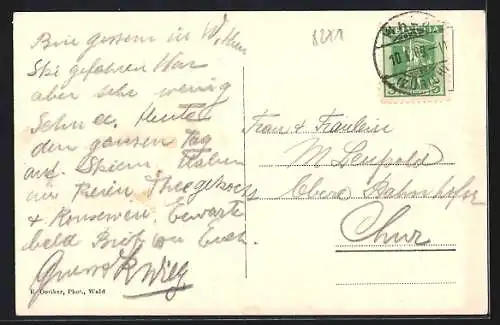 Bin gestern in W
Ski gefahren War
aber sehr wenig
Schnee. Heute
den ganzen Tag
auf Skiern. Haben
nur Theegekocht
& Konserven. Erwarte
bald von Euch.
Gruss
E. Oeniker, Phot., Wald
8281
WALD
10. 09 - 11
(ZÜRICH)
HELVETIA
5
Frau & Fräulein
M Leupold
Obere Bahnhofstr
Chur